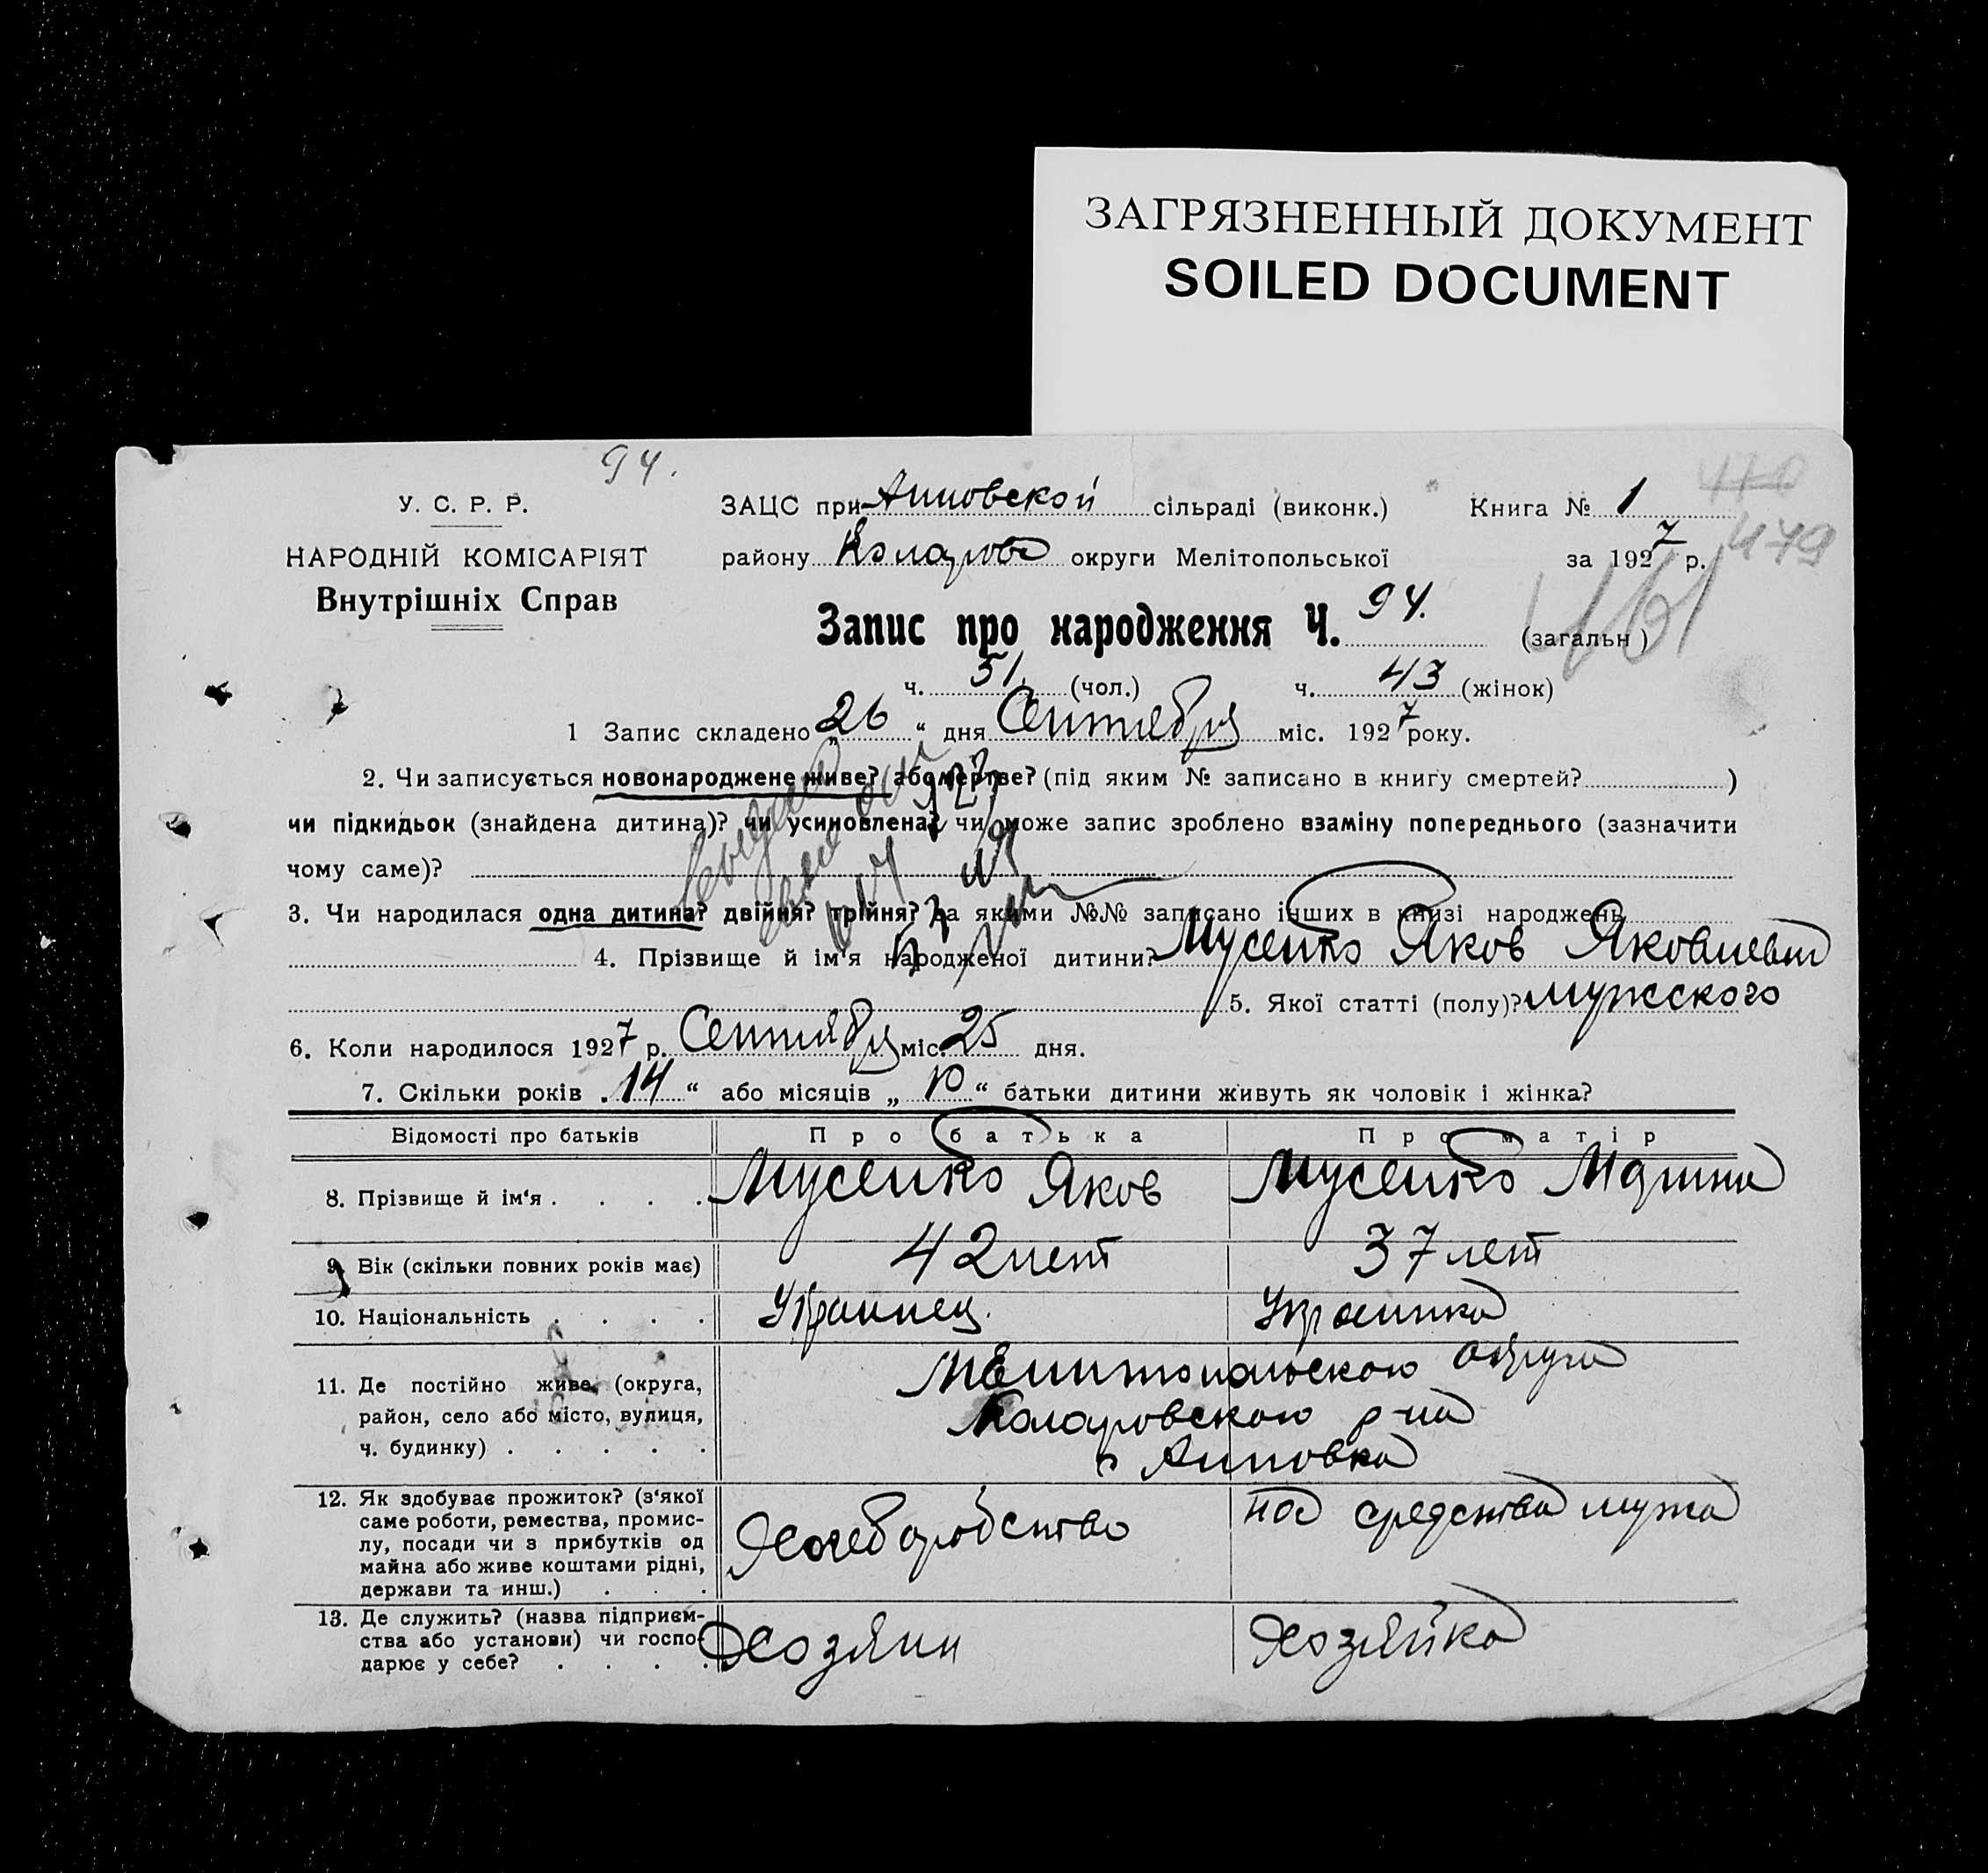 ЗАГРЯЗНЕННЫЙ ДОКУМЕНТ
SOILED DOCUMENT
94.
У. С. Р. Р.
НАРОДНІЙ КОМІСАРІЯТ
Внутрішніх Справ
ЗАЦС при Анновской сільраді (виконк.) Книга № 1
470
району Коларово округи Мелітопольської за 1927 р.
479
Запис про народження Ч. 94. (загальн)
ч. 51. (чол.) ч. 43 (жінок)
1 Запис складено „26“ дня Сентября міс. 1927 року.
2. Чи записується новонароджене живе? або мертве? (під яким № записано в книгу смертей? )
чи підкидьок (знайдена дитина)? чи усиновлена? чи може запис зроблено взаміну попереднього (зазначити
чому саме)?
3. Чи народилася одна дитина? двійня? трійня? за якими №№ записано інших в книзі народжень
4. Прізвище й ім'я народженої дитини? Мусенко Яков Яковлевич
5. Якої статті (полу)? мужского
6. Коли народилося 1927 р. Сентября міс. 25 дня.
7. Скільки років „14“ або місяців „10“ батьки дитини живуть як чоловік і жінка?
Відомості про батьків Про батька Про матір
8. Прізвище й ім'я . . . . Мусенко Яков Мусенко Марина
9. Вік (скільки повних років має) 42 лет 37 лет
10. Національність . . . . Украинец. Украинка
11. Де постійно живе, (округа,
район, село або місто, вулиця,
ч. будинку) . . . . .
Мелитопольского округа
Коларовского р-на
с Анновка
12. Як здобуває прожиток? (з'якої
саме роботи, ремества, промис-
лу, посади чи з прибутків од
майна або живе коштами рідні,
держави та инш.) . . .
Хлебородство
на средства мужа
13. Де служить? (назва підприєм-
ства або установи) чи госпо-
дарює у себе? . . . .
Хозяин
Хозяйка